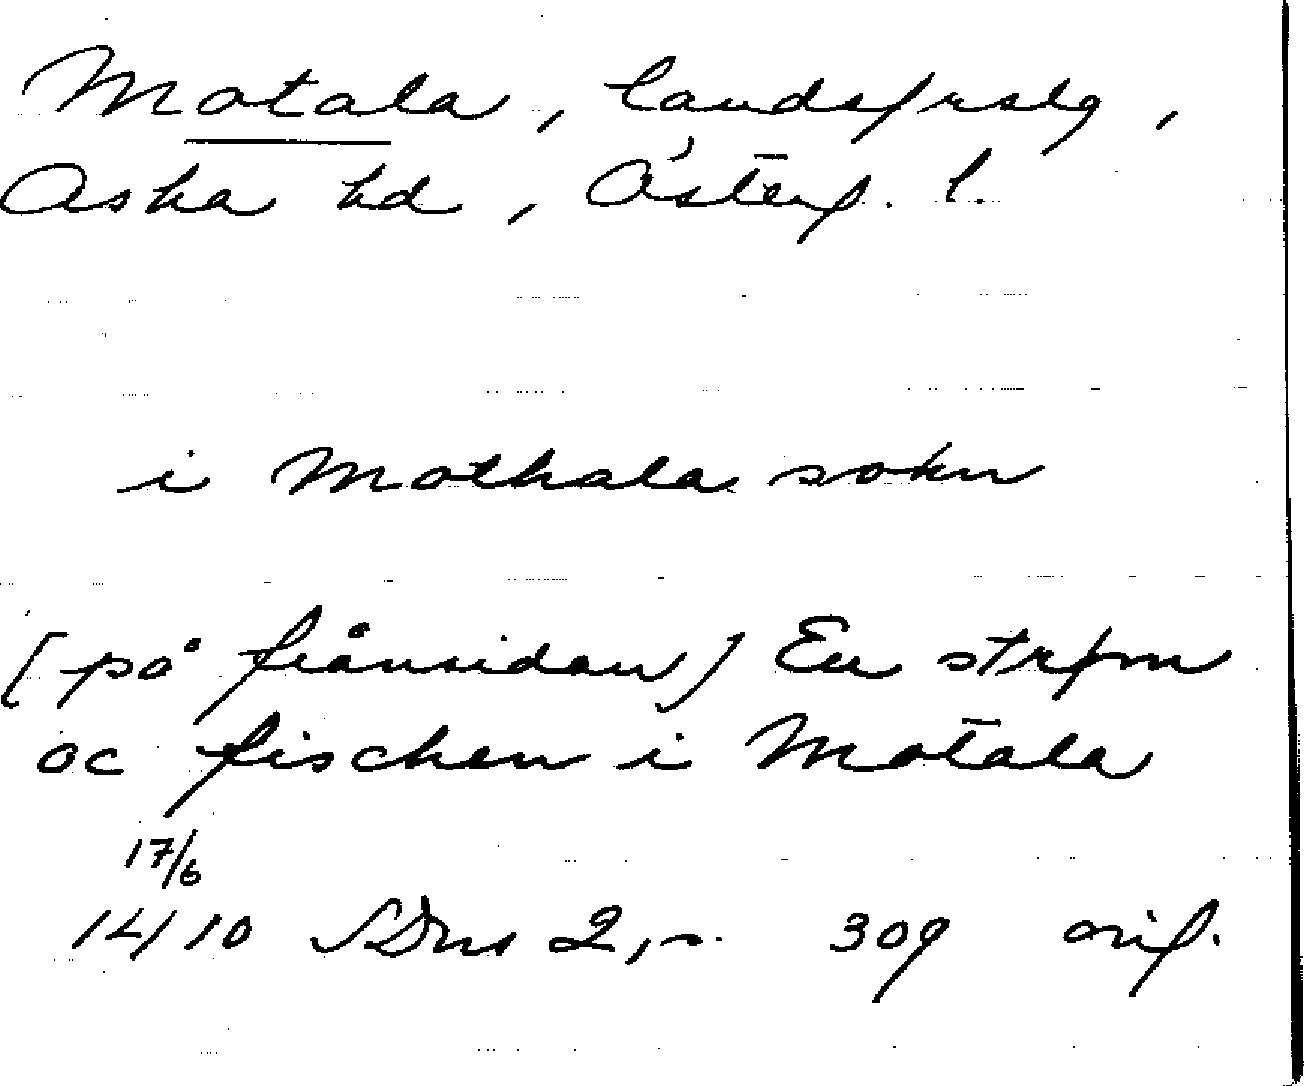 Motala, landsfrslg,
Aska hd, Österg. l.
i Mothala sokn
[på frånsidan] En strøm
oc fischen i Motala
17/6
1410 SDns 2, 309 orig.